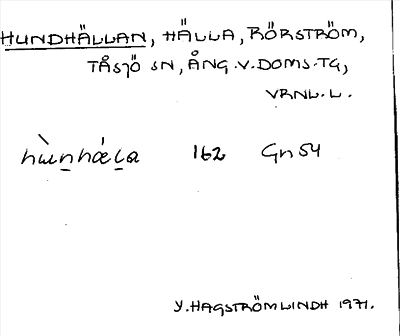 HUNDHÄLLAN, HÄLLA, RÖRSTRÖM,
TÅSJÖ SN, ÅNG.V.DOMS.TG,
VRNL.L.
hùn̲hǽl̲a 162 Gn 54
Y.HAGSTRÖM LINDH 1971.